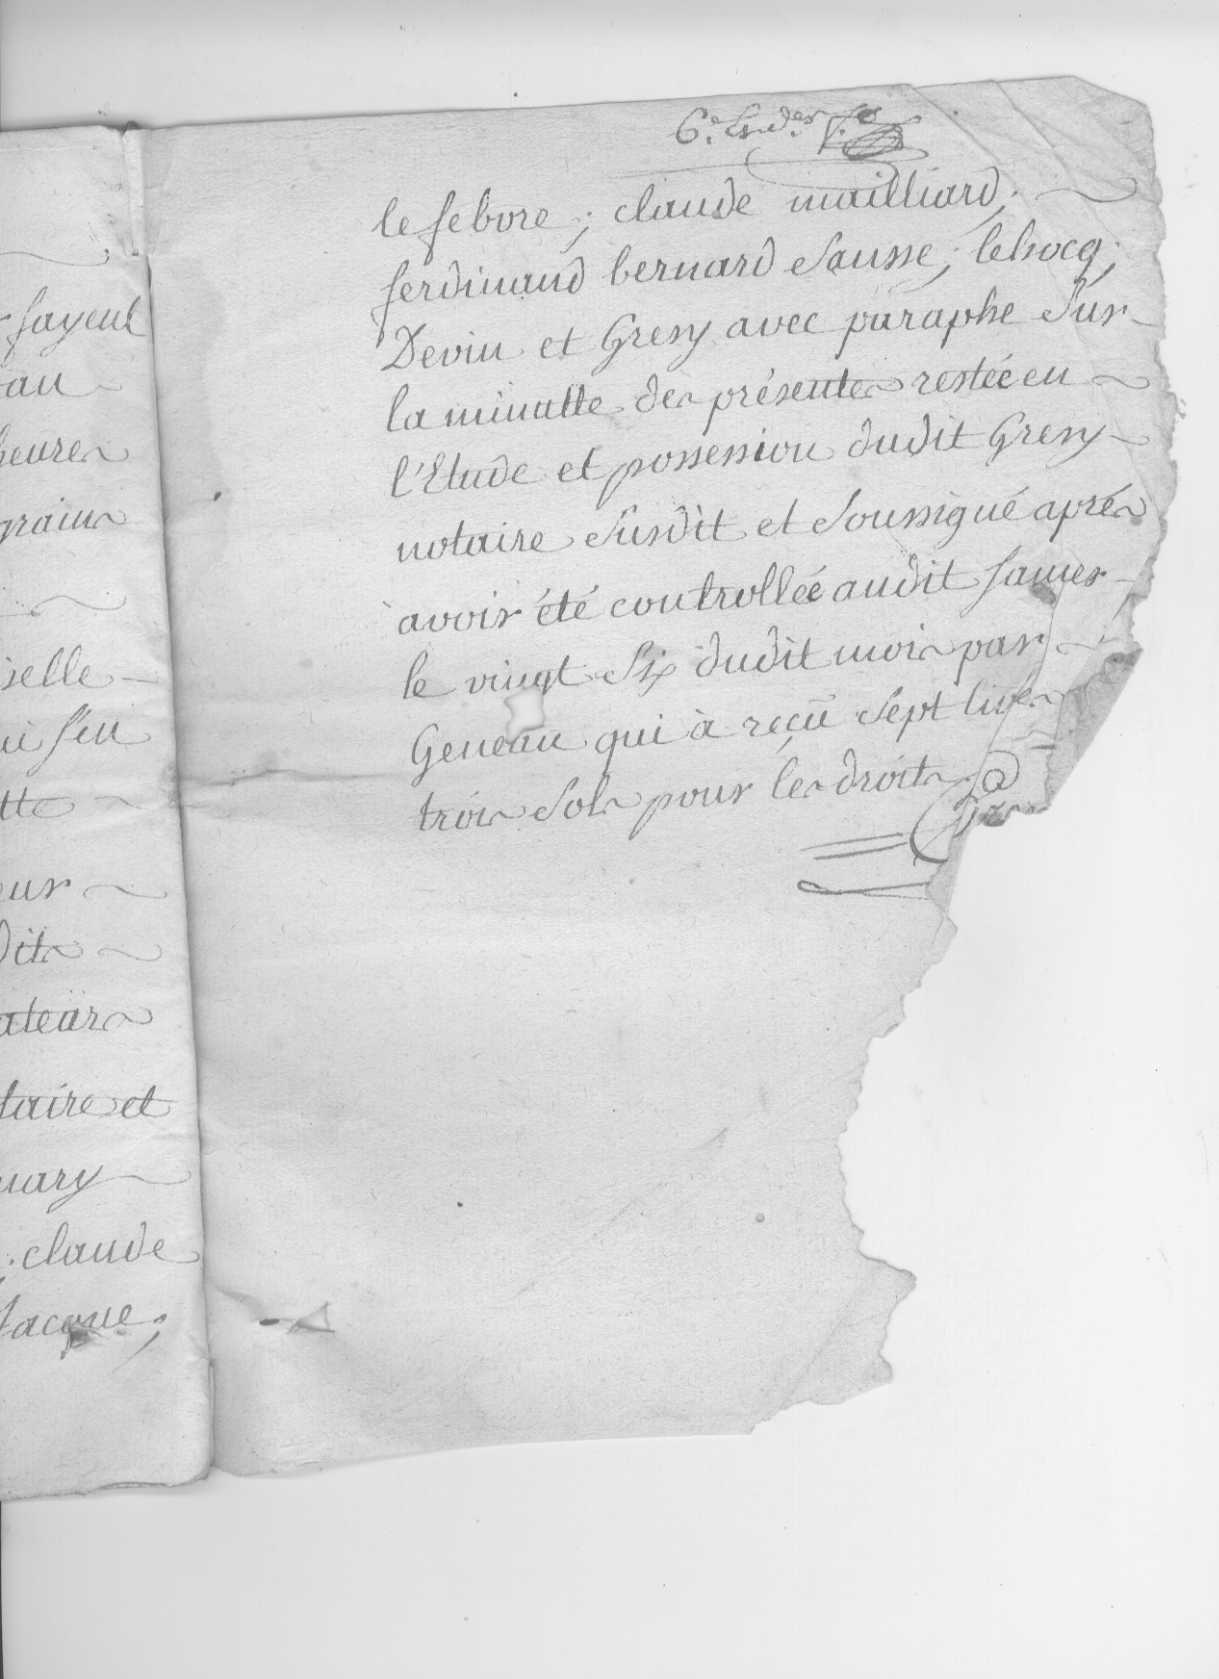 fayeul
au
heures
grains
selle
feu
tte
ur
dits
ateurs
taire et
mary
; claude
Jacque;
6.e et d.er
lefebvre; claude mailliard;
ferdinand bernard Sausse; lehocq;
Devin et Gresy avec paraphe Sur
la minutte des présentes restée en
l'Etude et possession dudit Gresy
notaire Susdit et Soussigné après
avoir été controllée audit Samer
le vingt Six dudit mois par
Geneau qui à reçu Sept livres
trois Sols pour les droits.